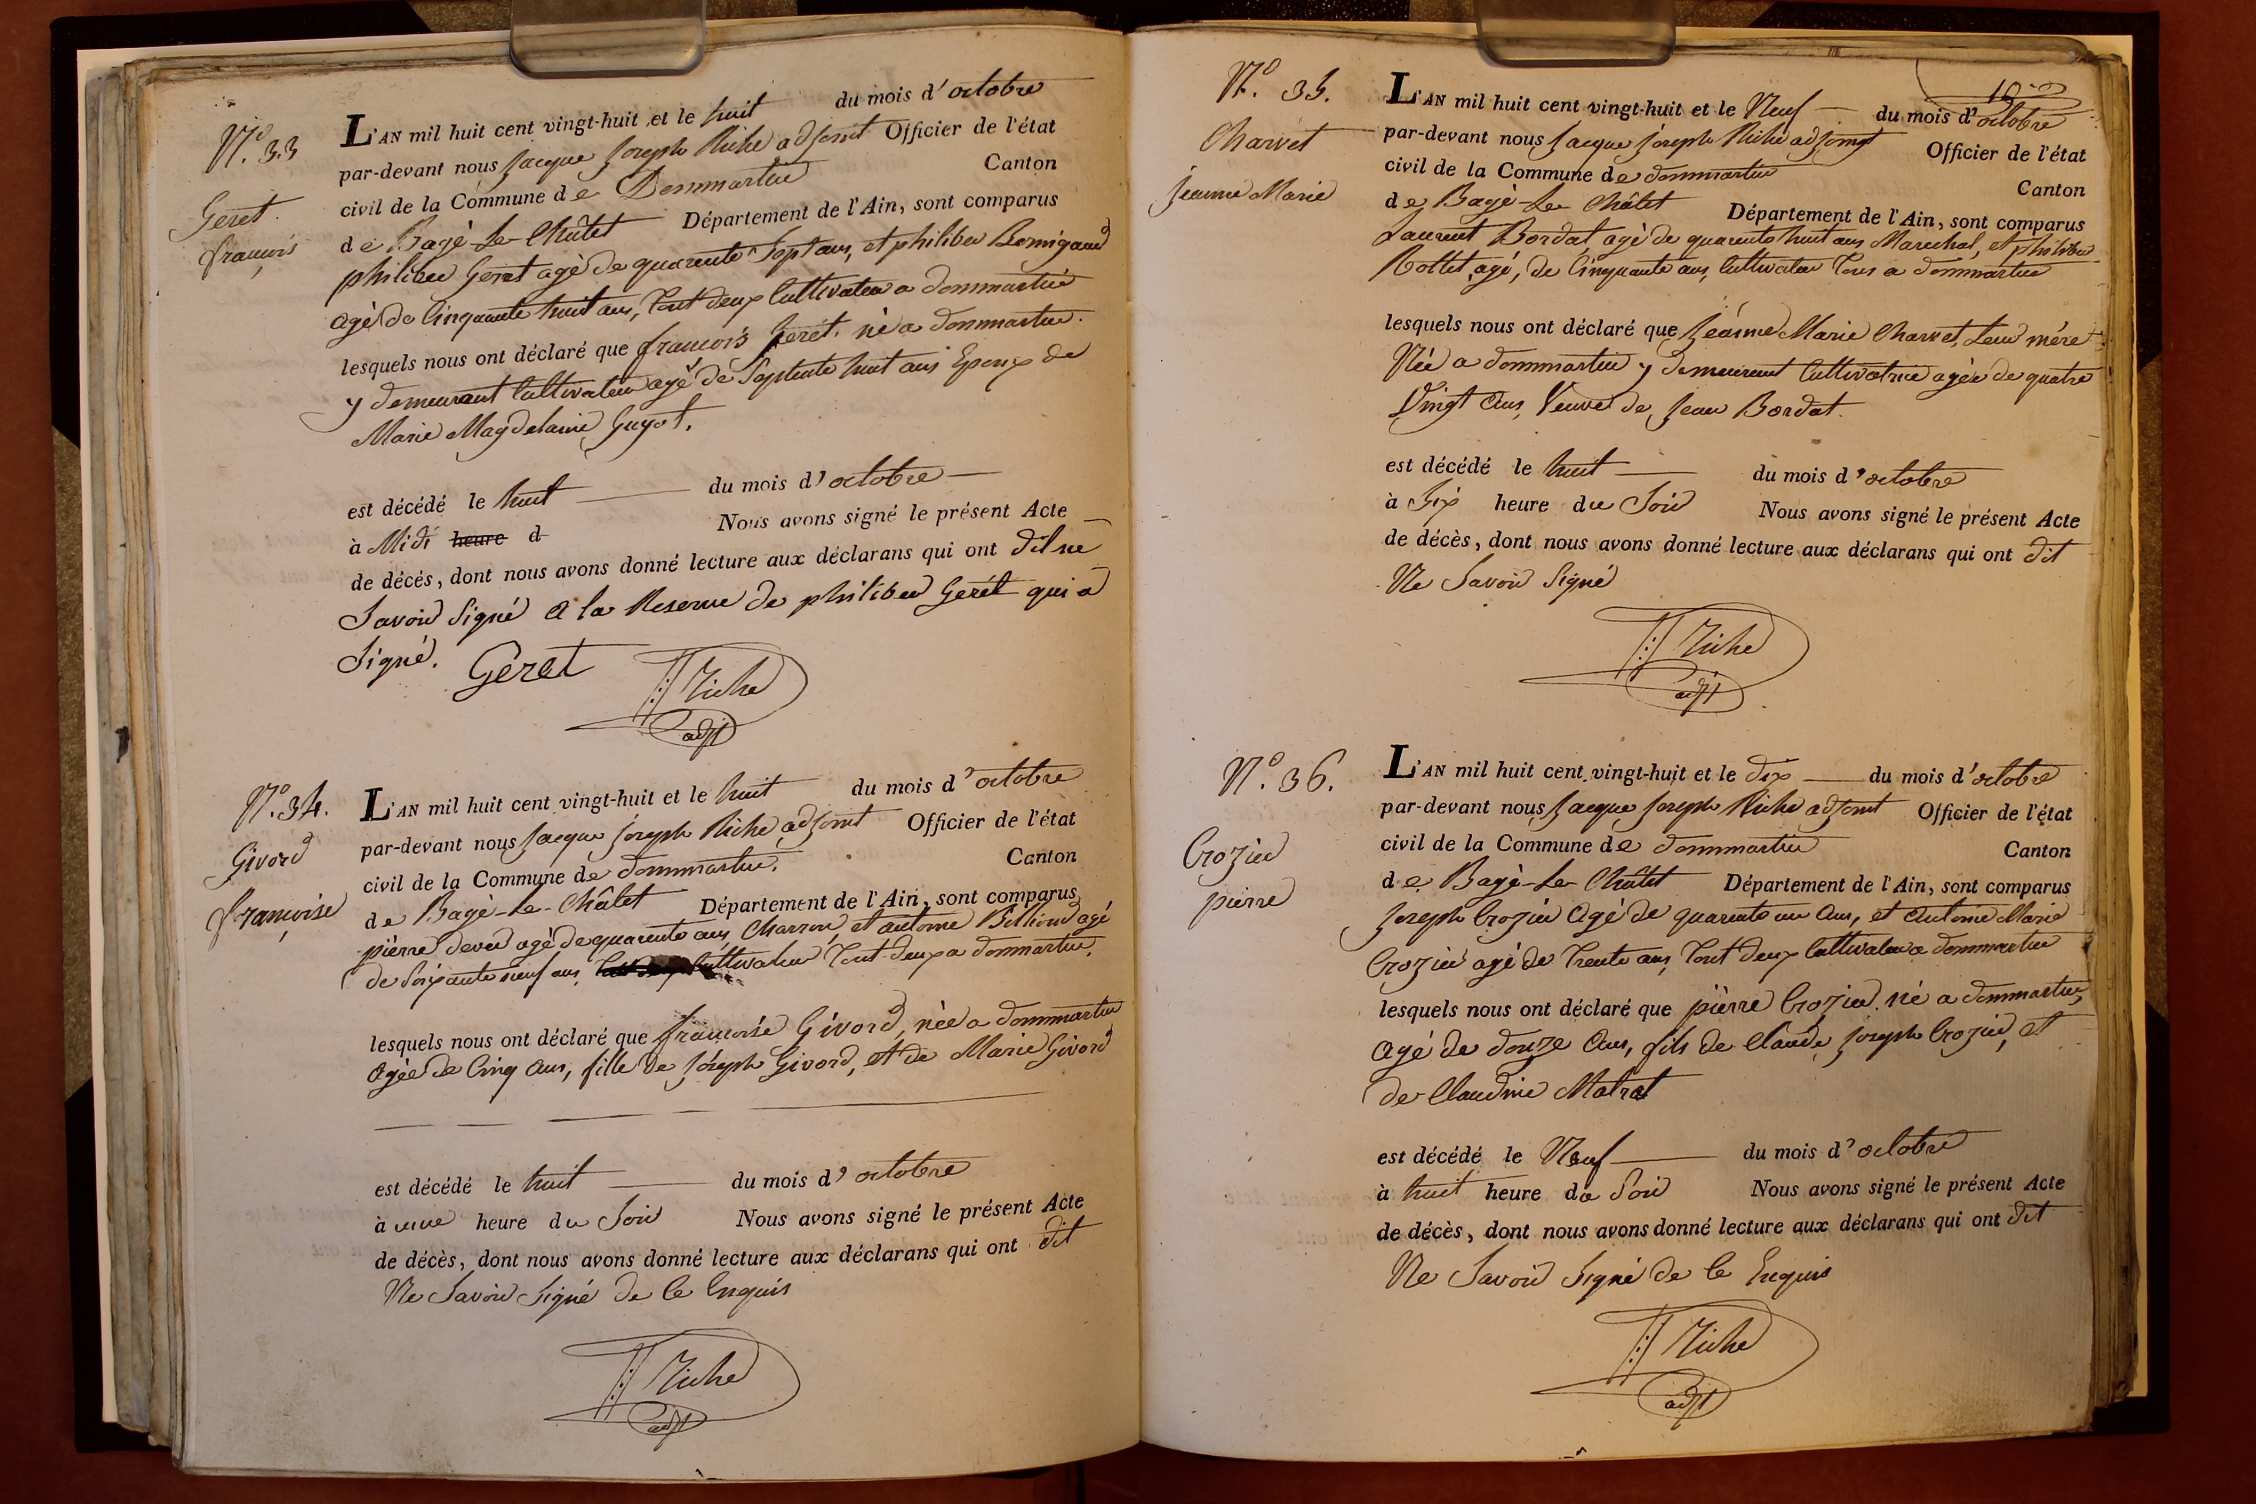 N.o 33
Geret
françois
L'AN mil huit cent vingt-huit et le huit du mois d'octobre
par-devant nous Jacque Joseph Riche adjoint Officier de l'état
civil de la Commune de Dommartin Canton
de Bagé-Le-Châtel Département de l'Ain, sont comparus
philiber Geret agé de quarente Sept ans, et philiber
agé de Cinquante huit ans, tout deux Cultivateur a dommartin
lesquels nous ont déclaré que françois Jeret. né a dommartin.
y demeurant Cultivateur agé de Septente huit ans Epoux de
Marie Magdelaine Guyot.
est décédé le huit du mois d'octobre
à Midi heure d Nous avons signé le présent Acte
de décés, dont nous avons donné lecture aux déclarans qui ont dit ne
Savoir Signé a la Reserve de philiber Gerét qui a
Signé. Geret Riche
adjt
N.o 34.
Givord
françoise
L'AN mil huit cent vingt-huit et le huit du mois d'octobre
par-devant nous Jacque Joseph Riche adjoint Officier de l'état
civil de la Commune de dommartin. Canton
de Bagé-Le-Châlet Département de l'Ain, sont comparus
pièrre agé de quarente ans Charron, et antoine agé
de Soixante neuf ans, Cultivateur tout-deux a dommartin.
lesquels nous ont déclaré que françoise Givord, née a dommartin
agée de Cinq ans, fille de Joseph Givord, et de Marie Givord
est décédé le huit du mois d'octobre
à une heure du Soir Nous avons signé le présent Acte
de décès, dont nous avons donné lecture aux déclarans qui ont dit
Ne Savoir Signé de Ce Enquis
Riche
adjt
10
N.o 35.
Charvet
Jeanne Marie
L'AN mil huit cent vingt-huit et le Neuf du mois d'octobre
par-devant nous Jacque Joseph Riche adjoingt Officier de l'état
civil de la Commune de dommartin Canton
de Bagé-Le-Châlet Département de l'Ain, sont comparus
Laurent Bordat agé de quarente huit ans Marechal, et philiber
Rollet, agé, de Cinquante ans, Cultivateur tous a dommartin
lesquels nous ont déclaré que Jeanne Marie Charvet, Leur mère
Née a dommartin y demeurent Cultivatrice agée de quatre
Vingt ans, Veuve de Jean Bordat.
est décédé le huit du mois d'octobre
à Six heure du Soir Nous avons signé le présent Acte
de décès, dont nous avons donné lecture aux déclarans qui ont dit
Ne Savoir Signé
Riche
adjt
N.o 36.
Crozier
pierre
L'AN mil huit cent vingt-huit et le dix du mois d'octobre
par-devant nous Jacque Joseph Riche adjoint Officier de l'état
civil de la Commune de dommartin Canton
de Bagé-Le-Châlet Département de l'Ain, sont comparus
Joseph Crozier agé de quarente un ans, et antoine Marie
Crozier agé de trente ans, tout deux Cultivateur a dommartin
lesquels nous ont déclaré que pièrre Crozier né a dommartin,
agé de douze ans, fils de Claude Joseph Crozier, et
de Claudine
est décédé le Neuf du mois d'octobre
à huit heure du Soir Nous avons signé le présent Acte
de décès, dont nous avons donné lecture aux déclarans qui ont dit
Ne Savoir Signé de Ce Enquis
Riche
adjt